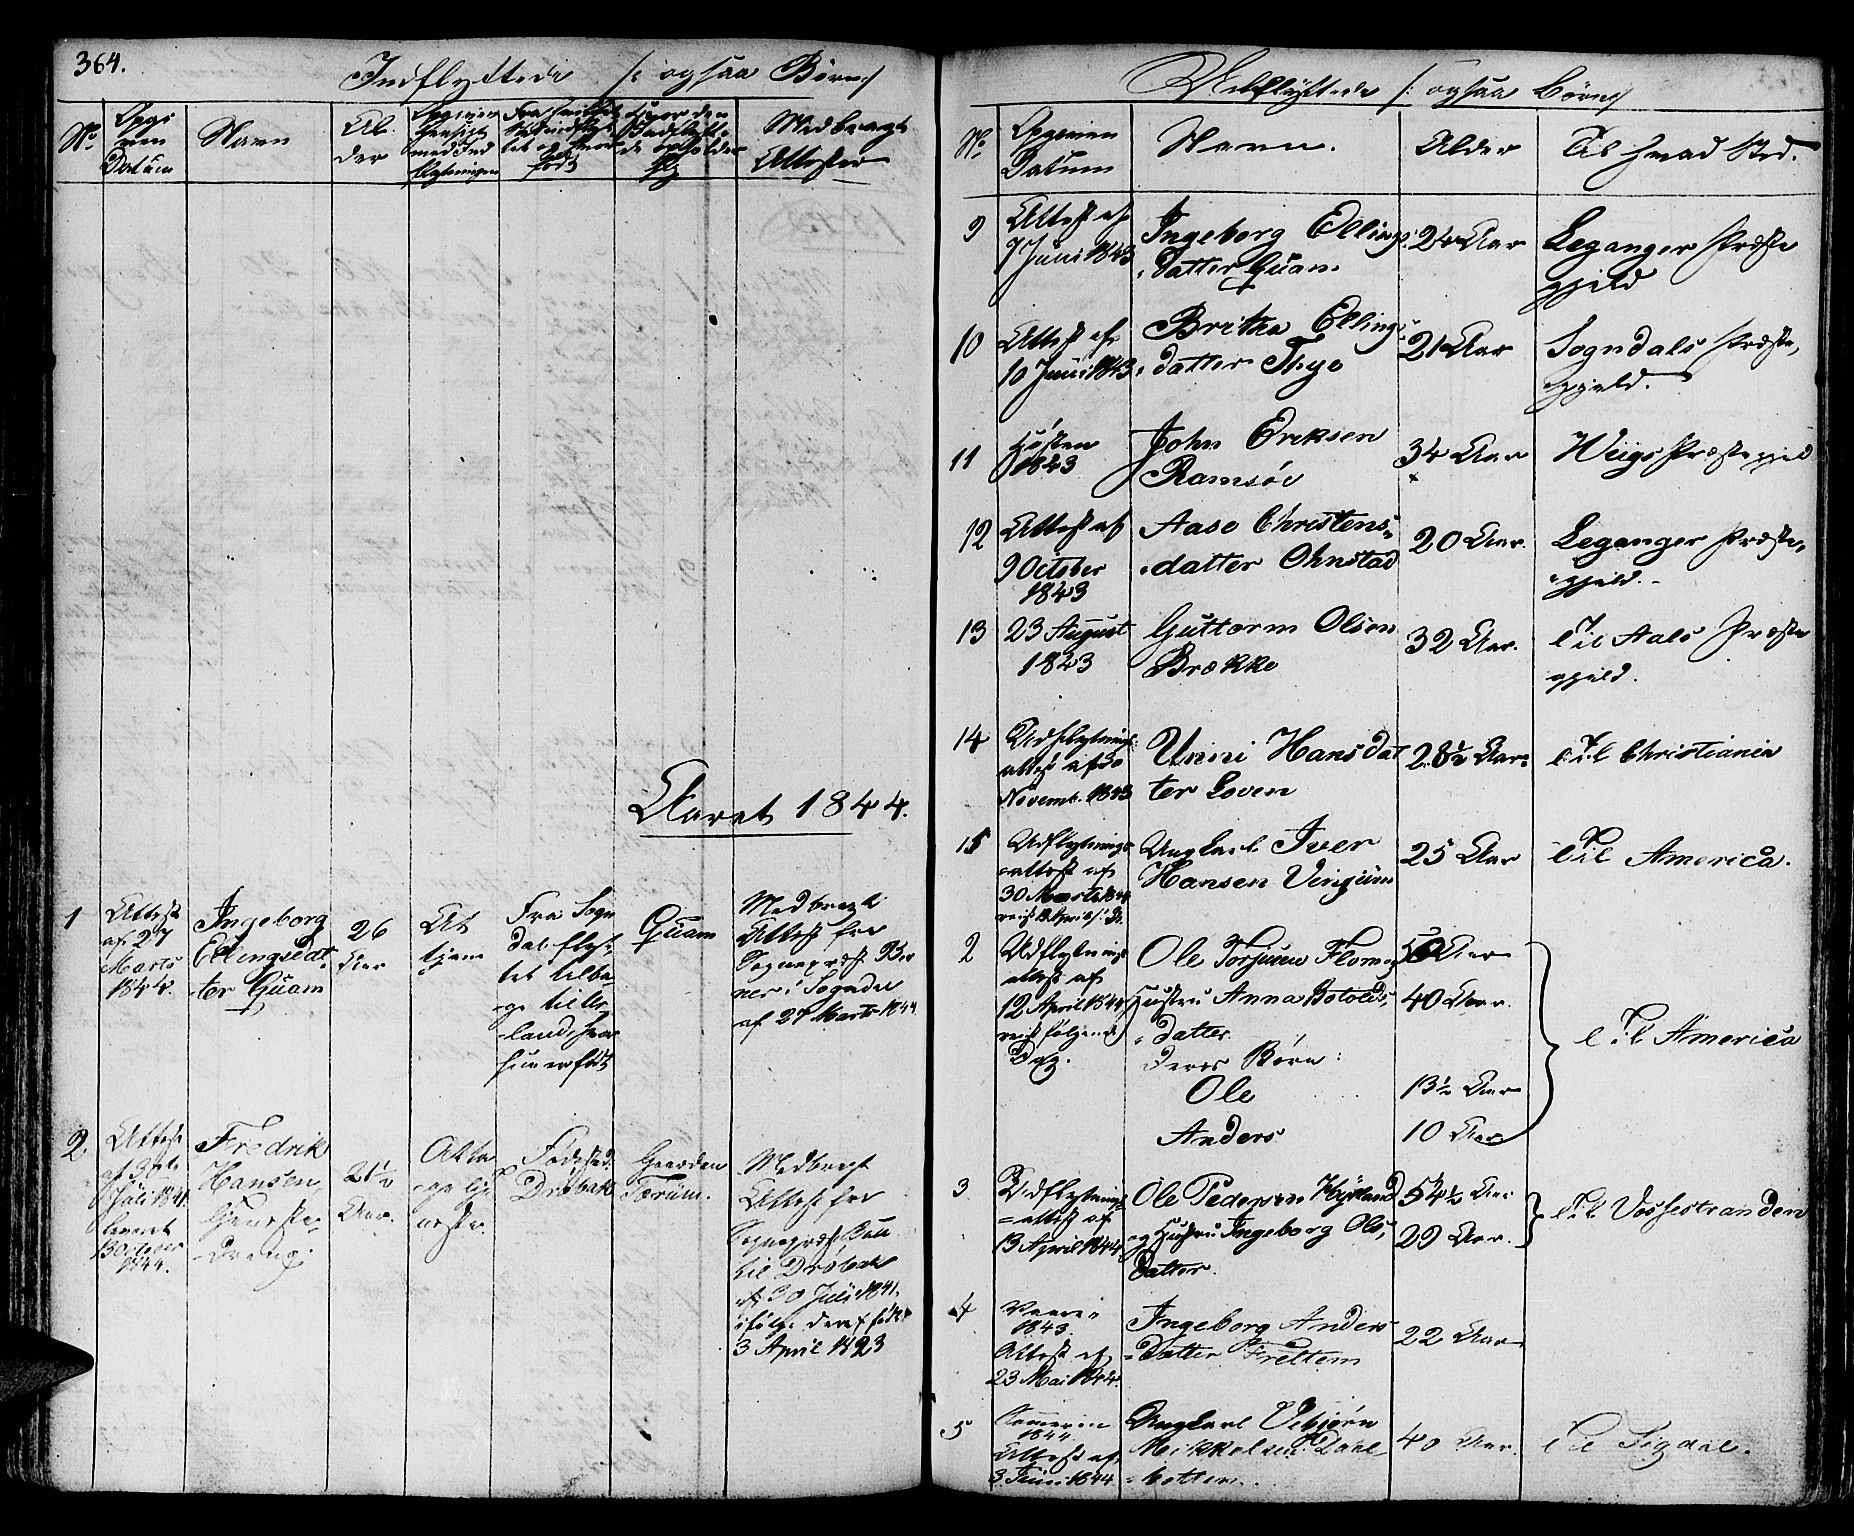 364.
Indflyttede /: ogsaa Børn /
No
Opgi
ven
Datum
Navn
Al-
der
Hvor den
Indflytte-
de opholder
sig
Medbragte
Attester
Aaret 1844.
1
Attest
af 27
Marts
1844.
Ingeborg
Ellingsdat-
ter Quam
26
Aar
At
tjene
Fra Sogn
dal flyt-
tet tilba-
ge til
-land hvor
hun er født
Quam
Medbragt
Attest fra
Sognepræst
ner i Sogndal
af 27 Marts 1844
2.
Attest
af
Juli 1841.
leveret
October
1844.
Fredrik
Hansen,
21½
Aar.
Fødested.
Drøbak
Gaarden
Tørum.
Medbragt
Attest fra
Sognepræst
til Drøbak
af 30 Juli 1841,
ifølge deraf født
3 April 1823
Udflyttede /: ogsaa Børn /
No
Opgiven
Datum
Navn.
Alder
Til hvad Sted.
9
Attest af
7 Juni 1843
Ingeborg Ellings-
datter Quam
24 Aar
Leganger Præste
gjeld
10
Attest af
10 Juni 1843.
Britha Ellings-
datter Thye
21 Aar
Sogndals Præste,
gjeld.
11
Høsten
1843
John Eriksen
Ramsøe
34 Aar
Wiigs Præstegjeld
12
Attest af
9 October
1843
Aase Christens-
datter Ohnstad
20 Aar.
Leganger Præste-
gjeld.-
13
23 August
1843
Guttorm Olsen
Brække
32 Aar.
Til Aals Præste
gjeld.
14
Udflytnings
attest af
Novemb. 1843
Unni Hansdat
ter Loven
28½ Aar
Til Christiania
15
Udflytnings
attest af
30 Marts 1844
Ungkarl Iver
Hansen Vinjum
25 Aar
Til America.
2
Udflytnings
attest af
12 April 1844
reist følgende
Dag.
Ole Torjusen Flom
Hustru Anna Botolds,
-datter.
Deres Børn:
Ole
Anders
50 Aar
40 Aar.
13½ Aar
10 Aar
til America
3
Udflytnings
-attest af
13 April 1844
Ole Pedersen
og Hustru Ingeborg Ols,
datter.
54½ Aar
29 Aar.
Til Vossestranden
4
1843.
Attest af
23 Mai 1844.
Ingeborg Anders
-datter Fretem
22 Aar
5
Sommeren
1844.
Attest af
3 Juni 1844
Ungkarl Vebjørn
Mikkelsen Dahl
-botten.
40 Aar.
Til Sigdal.